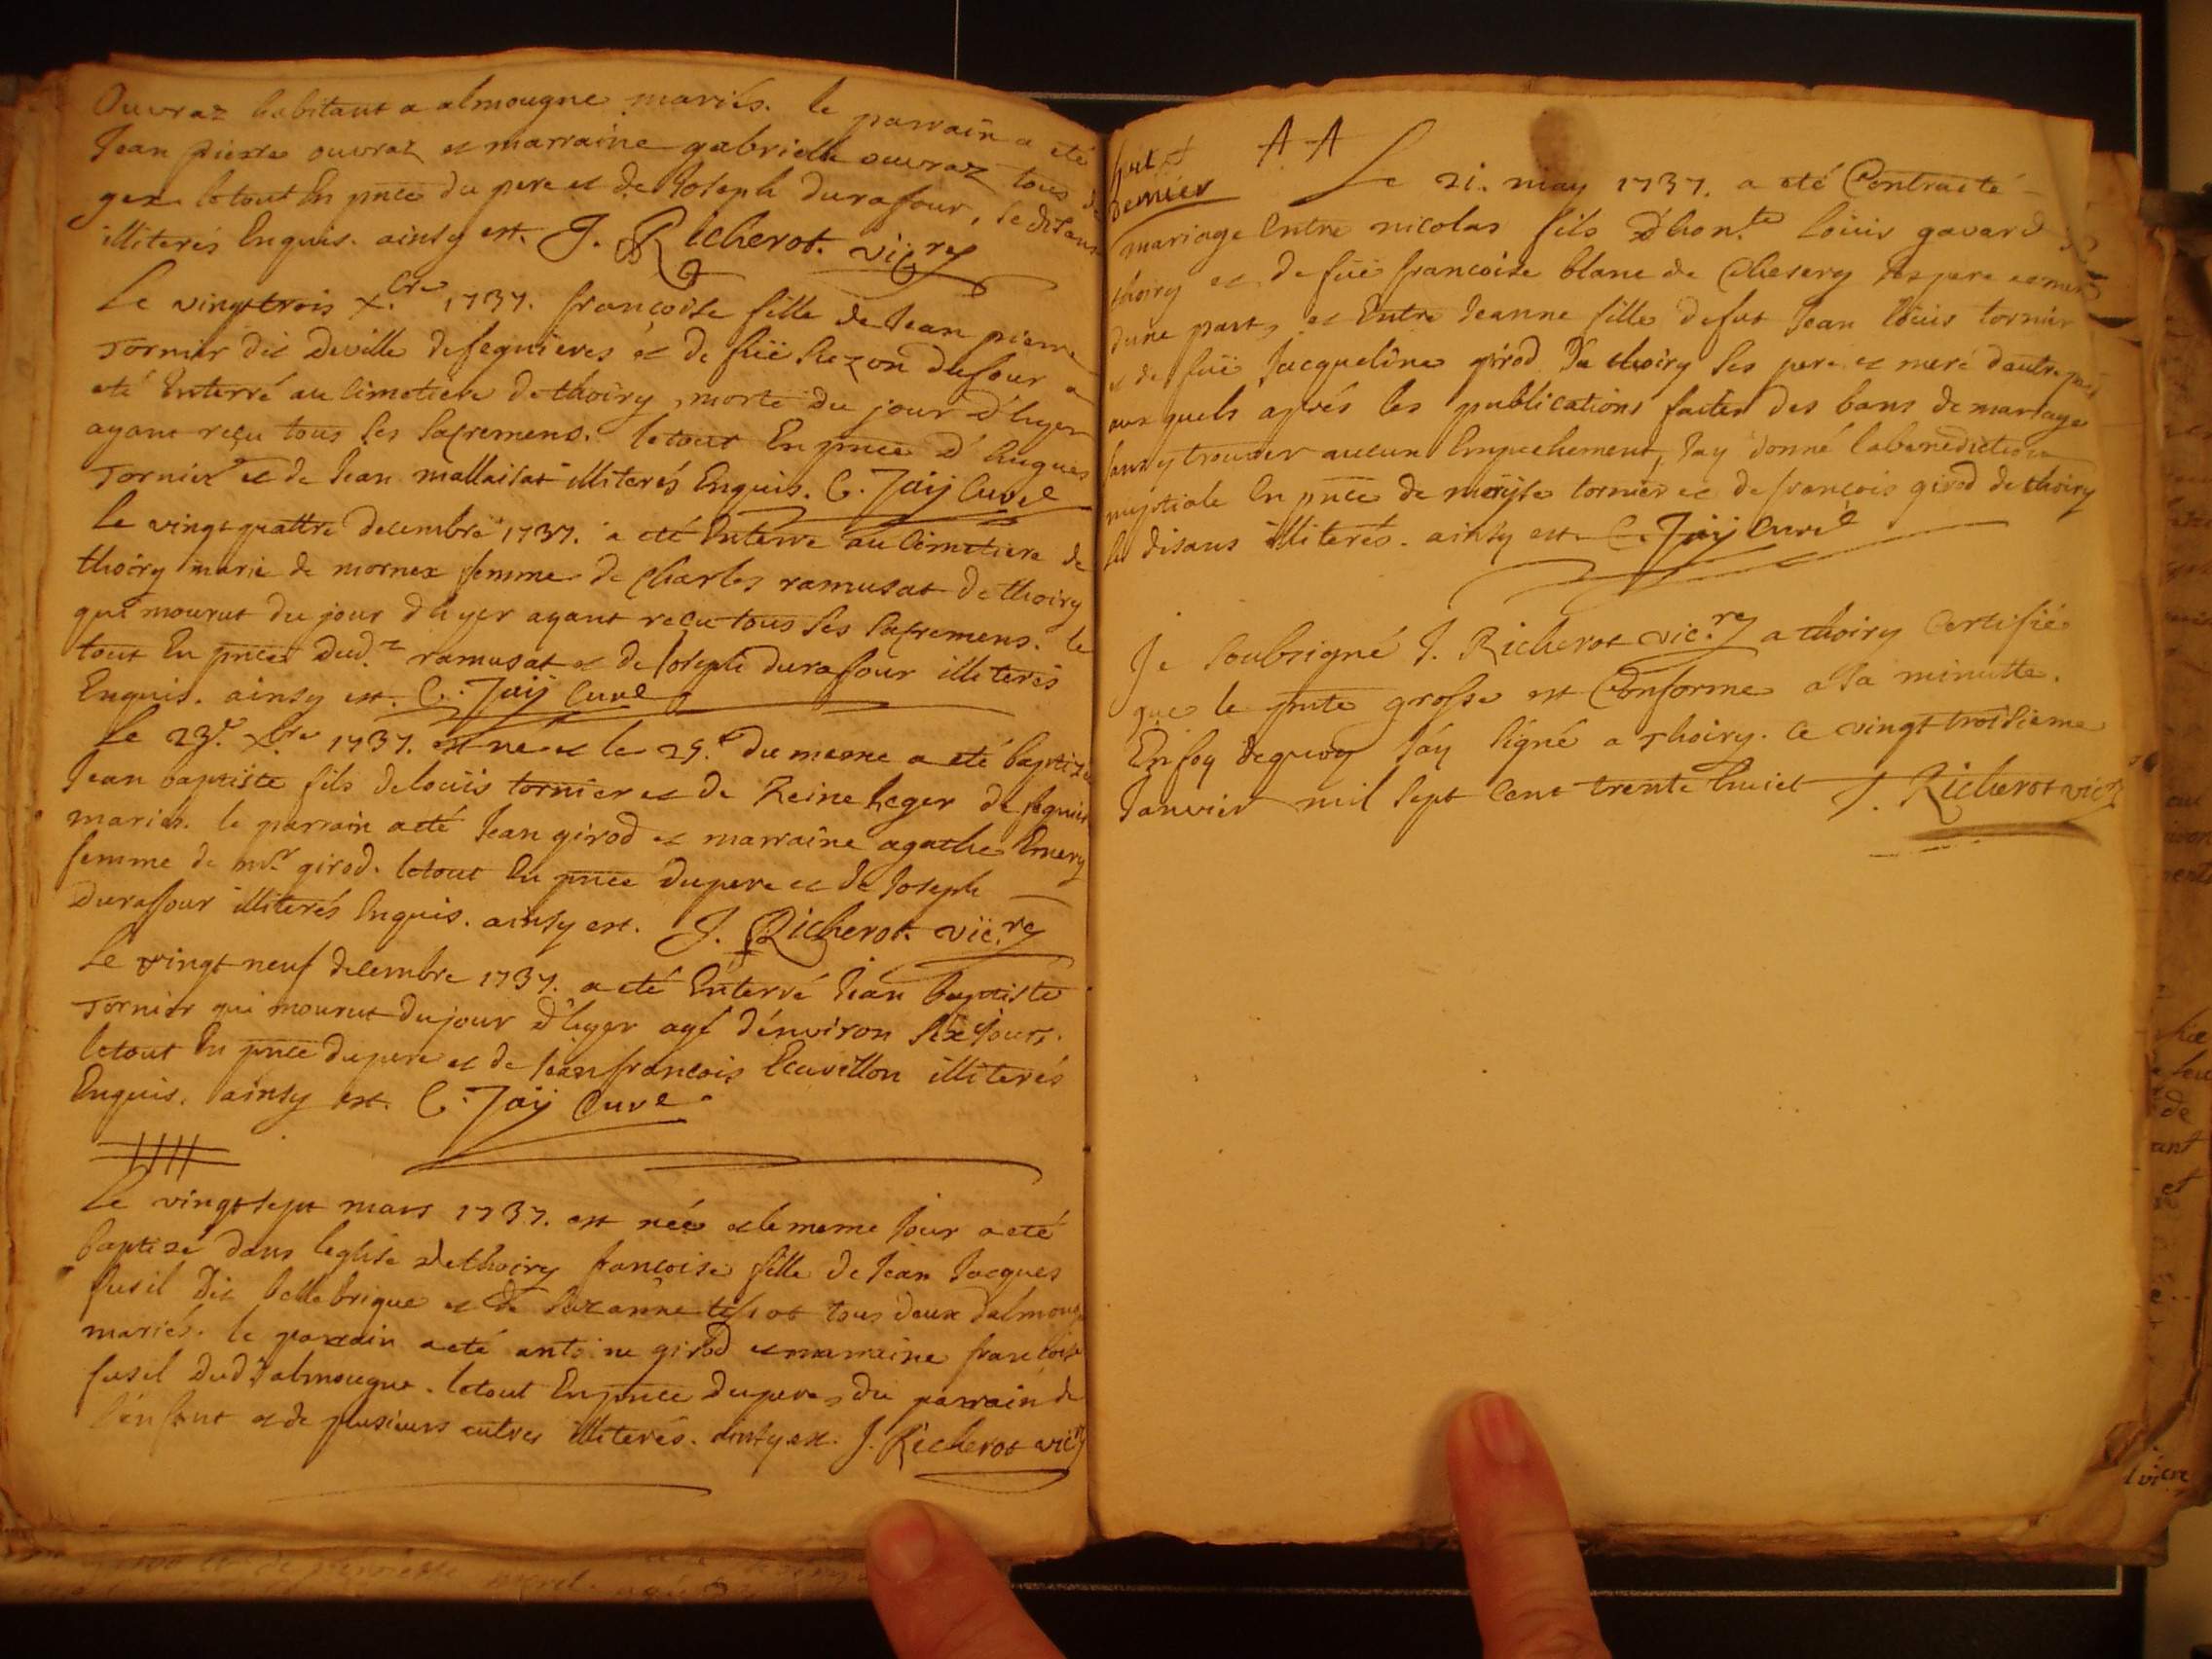 Ouvraz habitant a almougne mariés. le parrain a eté
Jean pierre ouvraz et marraine gabrielle ouvraz tous de
gex. le tout En pnce du pere et de Joseph durafour, se disans
illiterés Enquis. ainsy est. J. Richerot. vicre
Le vingt trois xbre 1737. francoise fille de Jean pierre
Tornier dit Deville de fegnieres et de füe Suzon dufour a
eté Enterré au Cimetiere de thoiry, morte du jour d'hyer
ayant reçu tous ses Sacremens. le tout En pnce d'hugues
Tornier et de Jean mallaisat illiterés Enquis. C. Jaÿ Curé
le vingt quattre decembre 1737. a eté Enterre au Cimetiere de
thoiry marie de mornex femme de Charles ramusat de thoiry
qui mourut du jour d'hyer ayant reçu tous ses Sacremens. le
tout En pnce dudt ramusat et de Joseph duraffour illiterés
Enquis. ainsy est. C. Jaÿ Curé
Le 23e. xbre 1737. est né et le 25e du meme a eté baptizé
Jean baptiste fils de loüis tornier et de Reine Leger de fegnier
mariés. le parrain a eté Jean girod et marraine agathe Emery
femme de mr. girod. le tout En pnce du pere et de Joseph
Duraffour illiterés Enquis. ainsy est. J. Richerot. vicre
Le vingt neuf decembre 1737. a eté Enterré Jean baptiste
Tornier qui mourut du jour d'hyer agé d'environ six jours.
le tout En pnce du pere et de Jean francois Ecuvillon illiterés
Enquis. ainsy est. C. Jaÿ Curé
Le vingt sept mars 1737. est née et le meme jour a eté
baptizé dans leglise de thoiry francoise fille de Jean Jacques
fusil dit belle brique et de Suzanne tissot tous deux dalmougne
mariés. le parrain a eté antoine girod et marraine francoise
fusil dudt almougne. le tout En pnce du pere, du parrain de
l'enfant et de plusieurs autres illiterés. ainsy est. J. Richerot vicre
fuillet
dernier
A A
Le 21. may 1737. a eté Contracté
mariage Entre nicolas fils d'honte loüis gavard de
thoiry et de füe francoise blanc de Chesery ses pere et mere
dune part, et Entre Jeanne fille de fut Jean loüis tornier
et de füe Jacqueline girod de thoiry ses pere et mere d'autre part
aux quels aprés les publications faites des bans de mariage
sans y trouver aucun Empechement, Jay donné la benediction
nuptiale En pnce de moÿse tornier et de francois girod de thoiry
se disans illiterés. ainsy est C. Jaÿ Curé
Je Soubsigné J. Richerot vicre a thoiry Certifie
que le pnte grosse est Conforme a sa minutte.
En foy dequoy Jáy signé a Thoiry. ce vingt troisieme
Janvier mil sept cent trente huict J. Richerot vicre